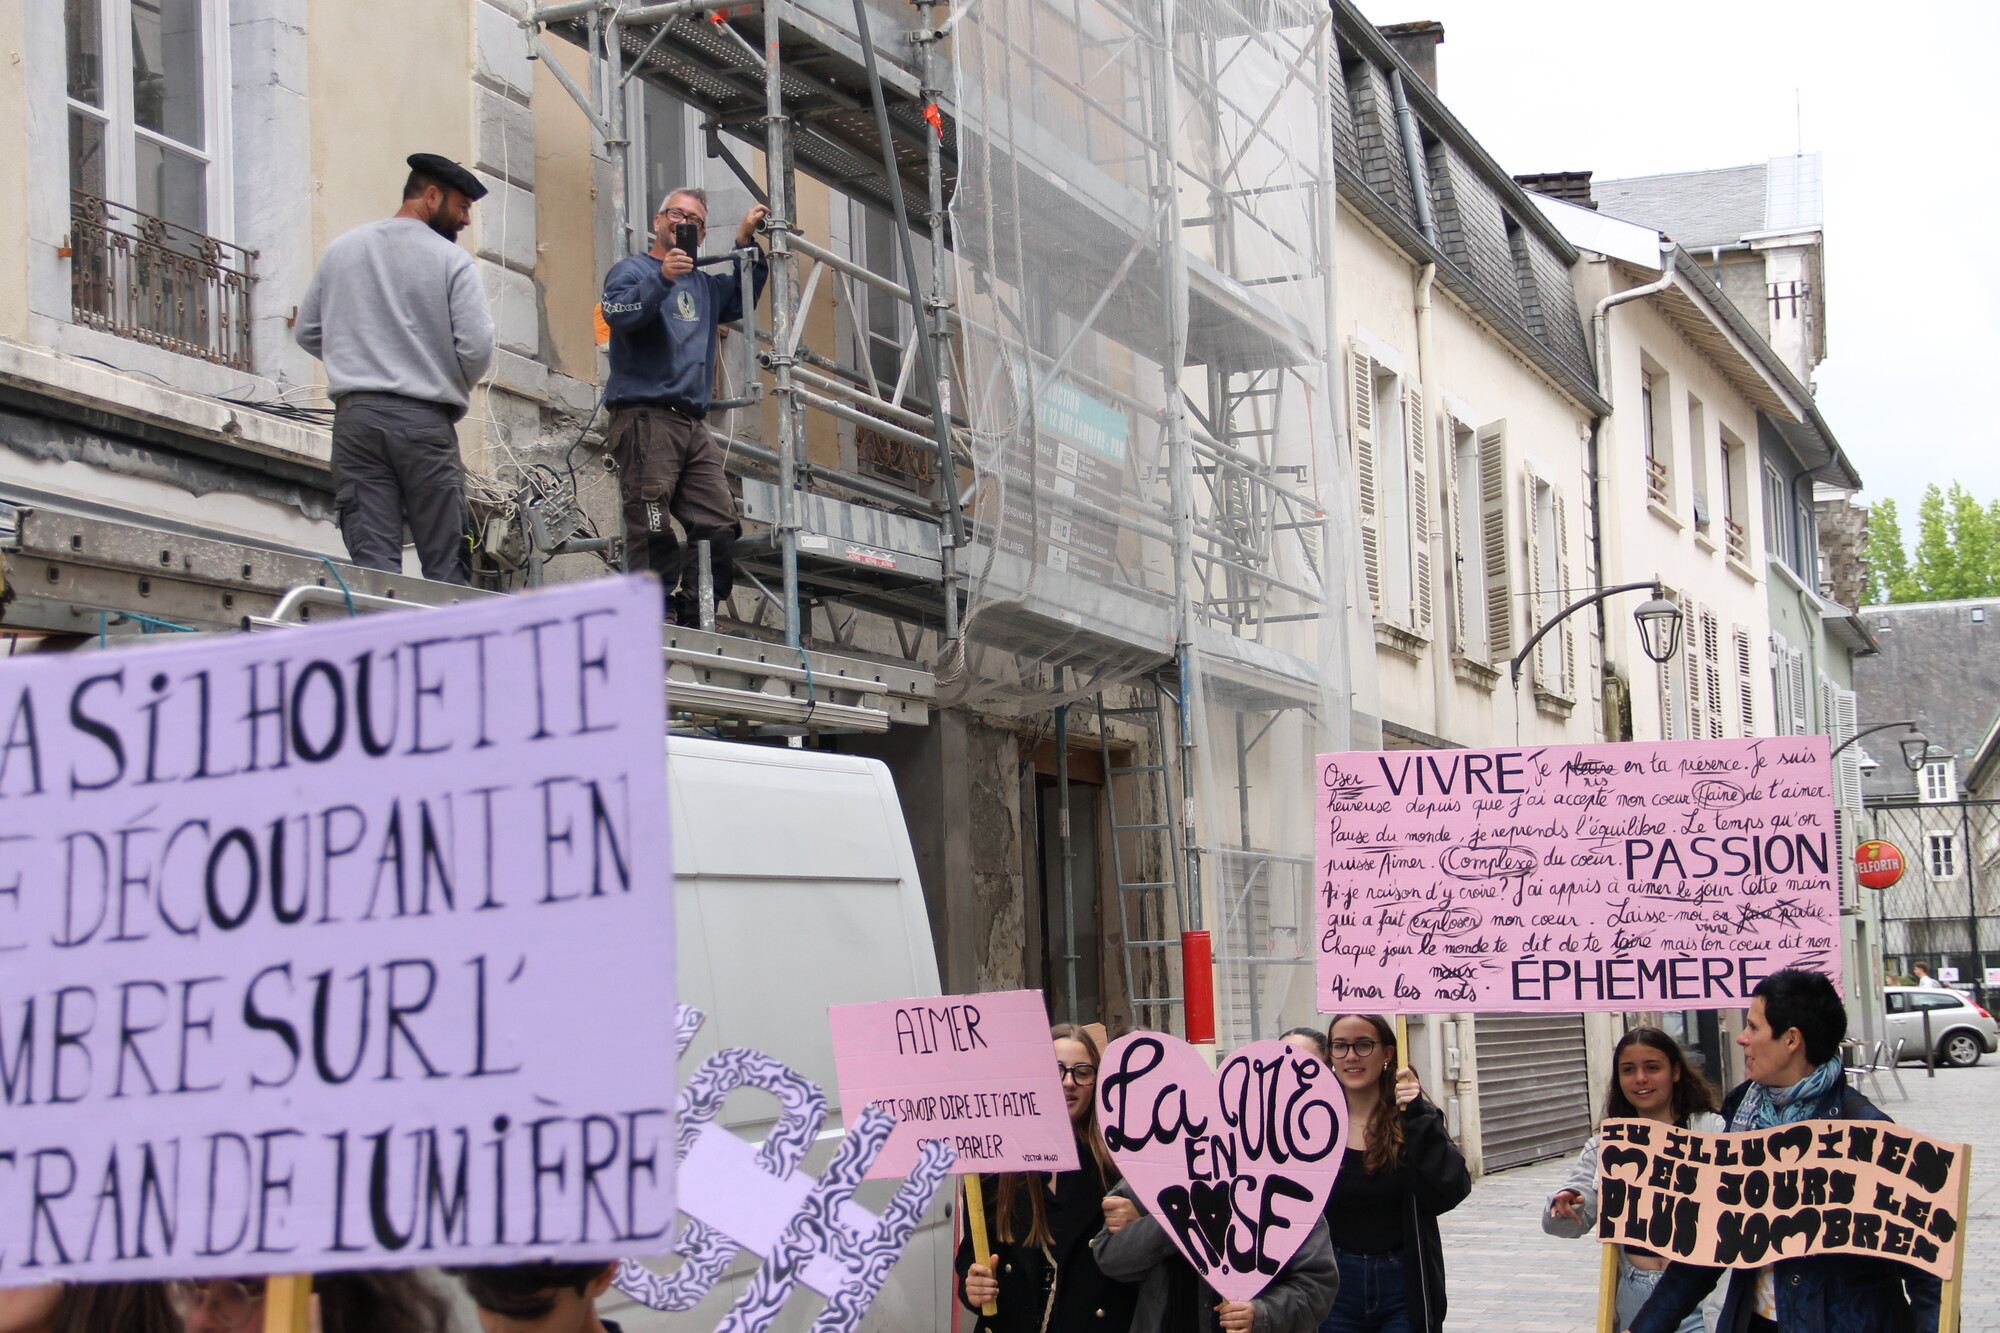 SILHOUETTE
DÉCOUPANT EN
SUR L'
DE LUMIÈRE
AIMER
SAVOIR DIRE JE T'AIME
PARLER
VICTOR HUGO
La ViE
EN
ROSE
Oser VIVRE Je pleure en ta présence. Je suis
ris
heureuse depuis que j'ai accepté mon coeur. Haine de t'aimer.
Pause du monde, je reprends l'équilibre. Le temps qu'on
puisse Aimer. Complexe du coeur. PASSION
Ai-je raison d'y croire? J'ai appris à aimer le jour. Cette main
qui a fait exploser mon coeur. Laisse-moi en faire partie.
vivre
Chaque jour le monde te dit de te taire mais ton coeur dit non.
maux
Aimer les mots. ÉPHÉMÈRE
TU iLLUMiNES
MES JOURS LES
PLUS SOMBRES
ELFORTH
12 RUE